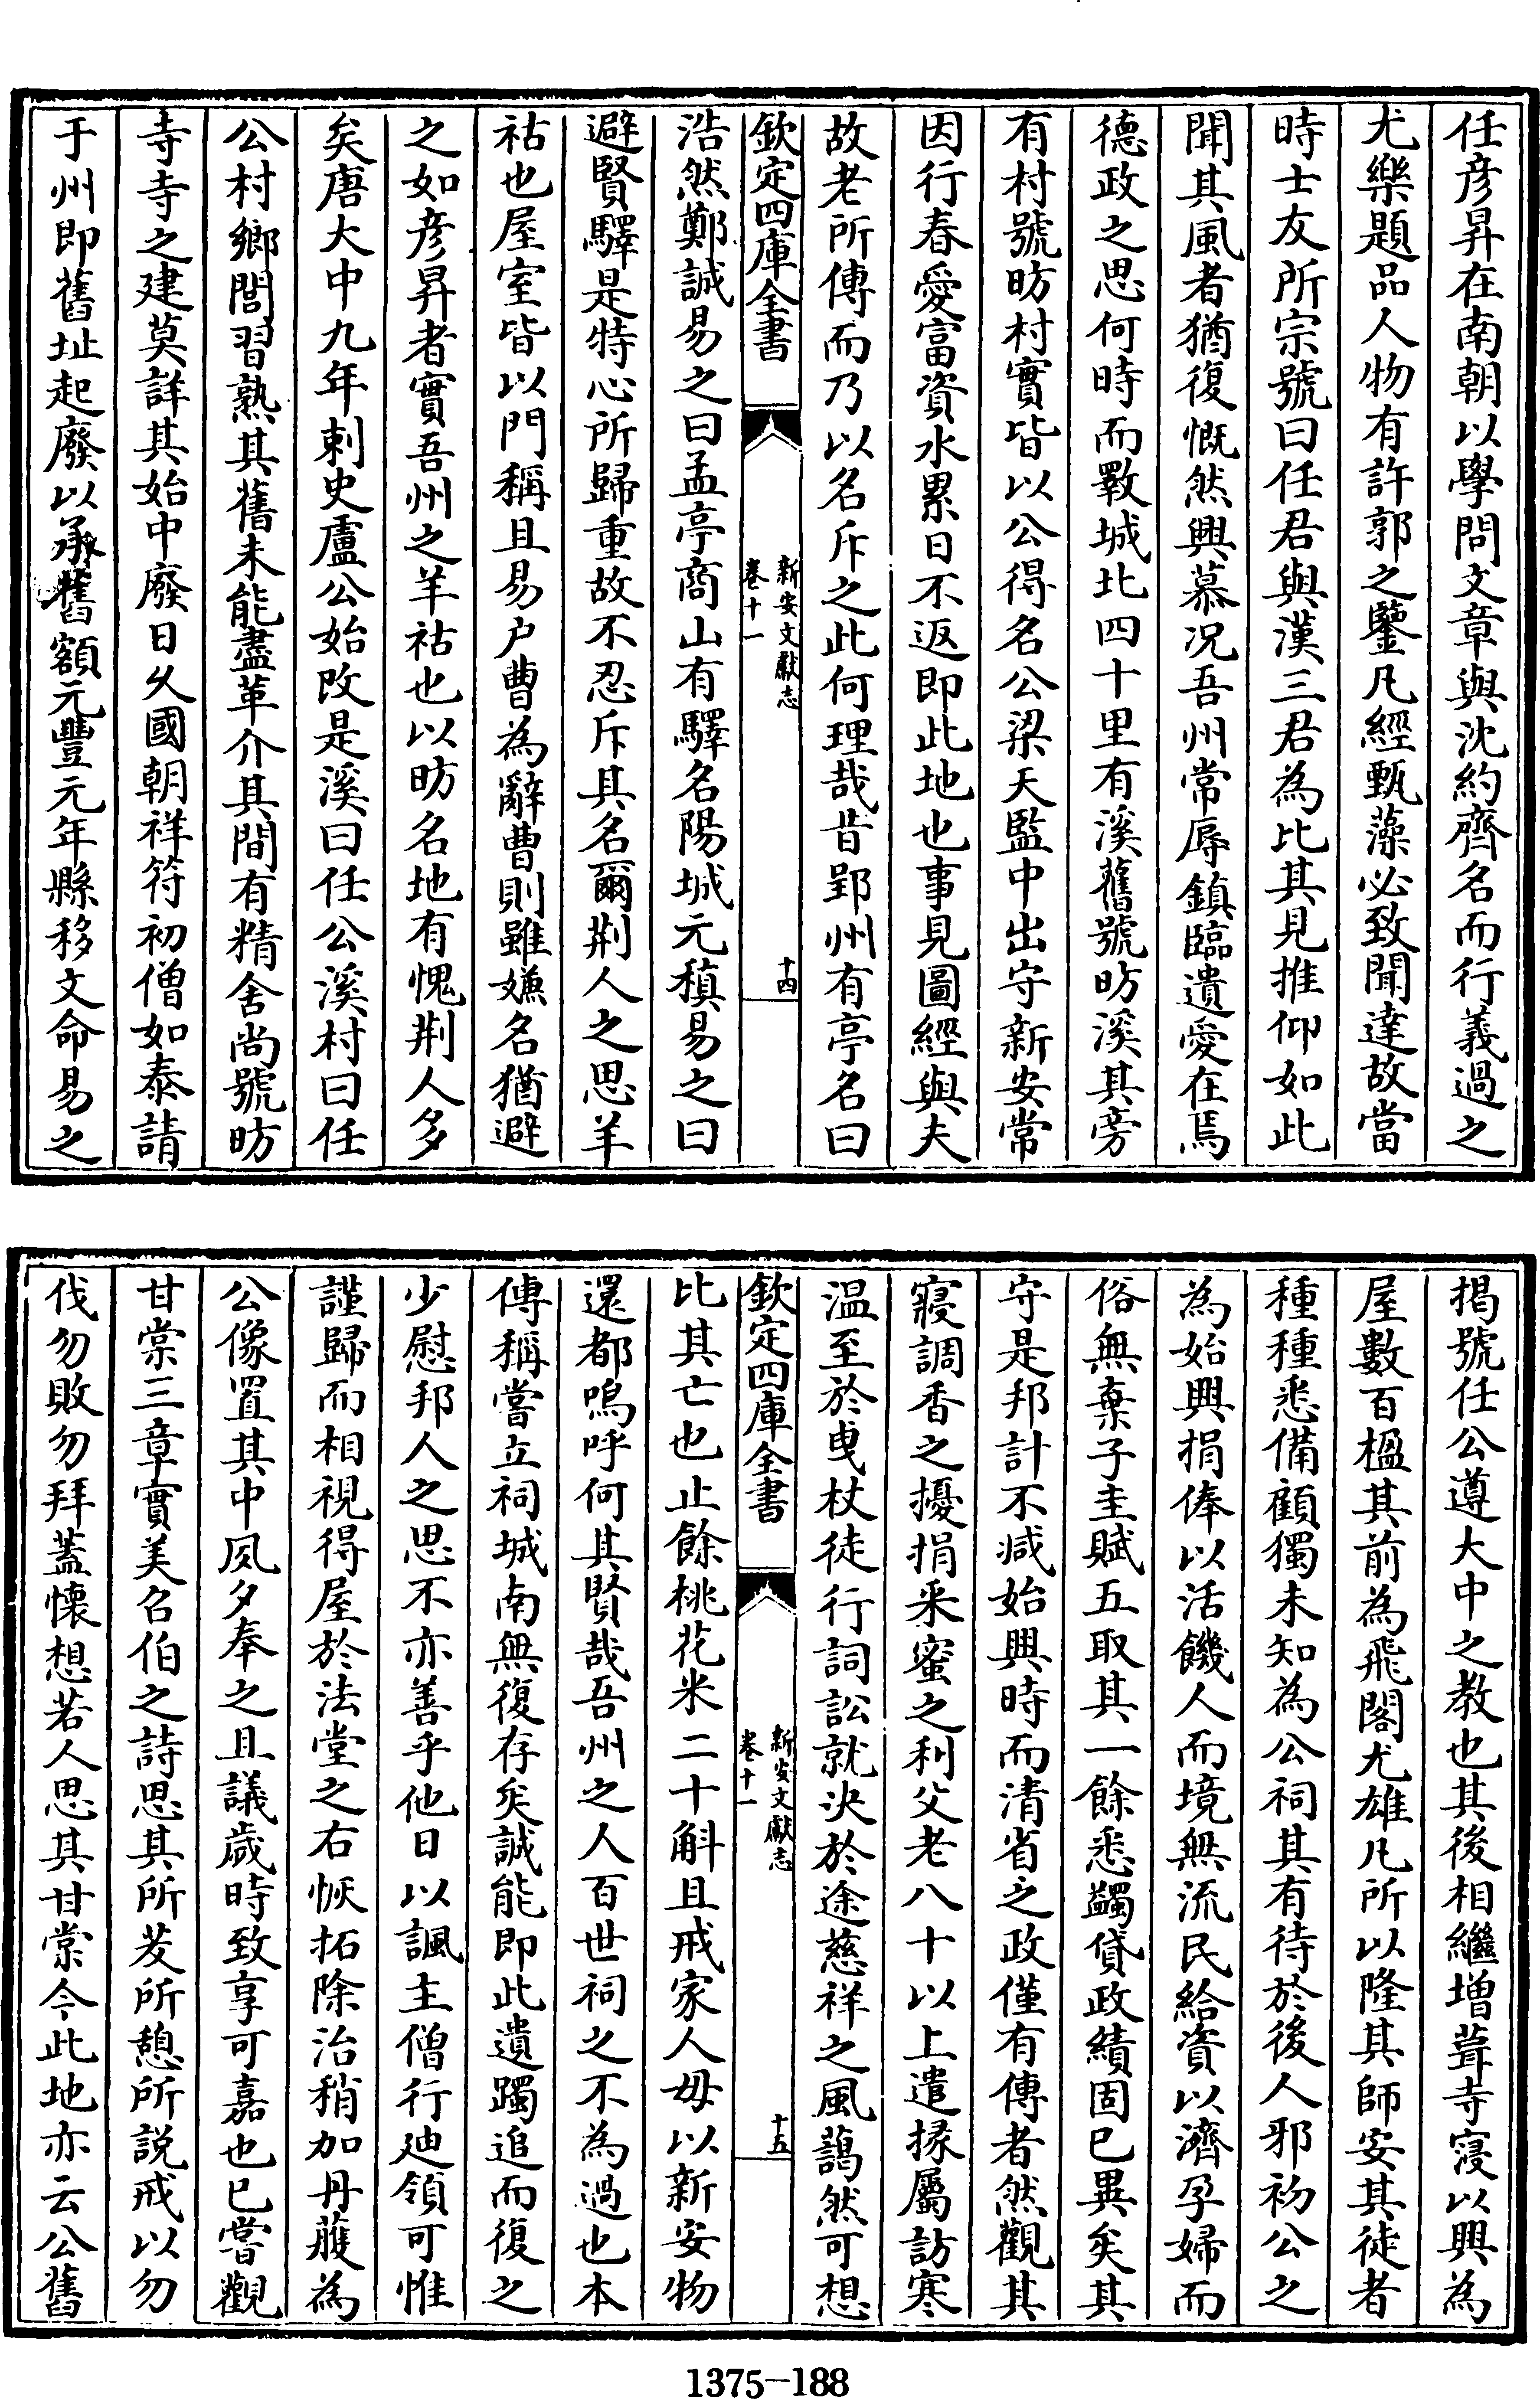 任彦昇在南朝以學問文章與沈約齊名而行義過之
尤樂題品人物有許郭之鑒凡經甄藻必致聞達故當
時士友所宗號曰任君與漢三君為比其見推仰如此
聞其風者猶復慨然興慕況吾州常辱鎮臨遺愛在焉
德政之思何時而斁城北四十里有溪舊號昉溪其旁
有村號昉村實皆以公得名公梁天監中出守新安常
因行春愛富資水累日不返即此地也事見圖經與夫
故老所傳而乃以名斥之此何理哉昔郢州有亭名曰
欽定四庫全書
新安文獻志
卷十一
十四
浩然鄭誠易之曰孟亭商山有驛名陽城元稹易之曰
避賢驛是特心所歸重故不忍斥其名爾荆人之思羊
祜也屋室皆以門稱且易户曹為辭曹則雖嫌名猶避
之如彦昇者實吾州之羊祜也以昉名地有愧荆人多
矣唐大中九年刺史盧公始改是溪曰任公溪村曰任
公村鄉閭習熟其舊未能盡革介其間有精舍尚號昉
寺寺之建莫詳其始中廢日久國朝祥符初僧如泰請
于州即舊址起廢以承舊額元豐元年縣移文命易之
揭號任公遵大中之教也其後相繼增葺寺寖以興為
屋數百楹其前為飛閣尤雄凡所以隆其師安其徒者
種種悉備顧獨未知為公祠其有待於後人邪初公之
為始興捐俸以活饑人而境無流民給資以濟孕婦而
俗無棄子圭賦五取其一餘悉蠲貸政績固已異矣其
守是邦計不减始興時而清省之政僅有傳者然觀其
寢調香之擾捐采蜜之利父老八十以上遣掾屬訪寒
温至於曵杖徒行詞訟就决於途慈祥之風藹然可想
欽定四庫全書
新安文獻志
卷十一
十五
比其亡也止餘桃花米二十斛且戒家人毋以新安物
還都嗚呼何其賢哉吾州之人百世祠之不為過也本
傳稱嘗立祠城南無復存矣誠能即此遺躅追而復之
少慰邦人之思不亦善乎他日以諷主僧行廸領可惟
謹歸而相視得屋於法堂之右恢拓除治稍加丹雘為
公像置其中夙夕奉之且議歲時致享可嘉也已嘗觀
甘棠三章實美召伯之詩思其所茇所憩所説戒以勿
伐勿敗勿拜蓋懷想若人思其甘棠今此地亦云公舊
1375-188